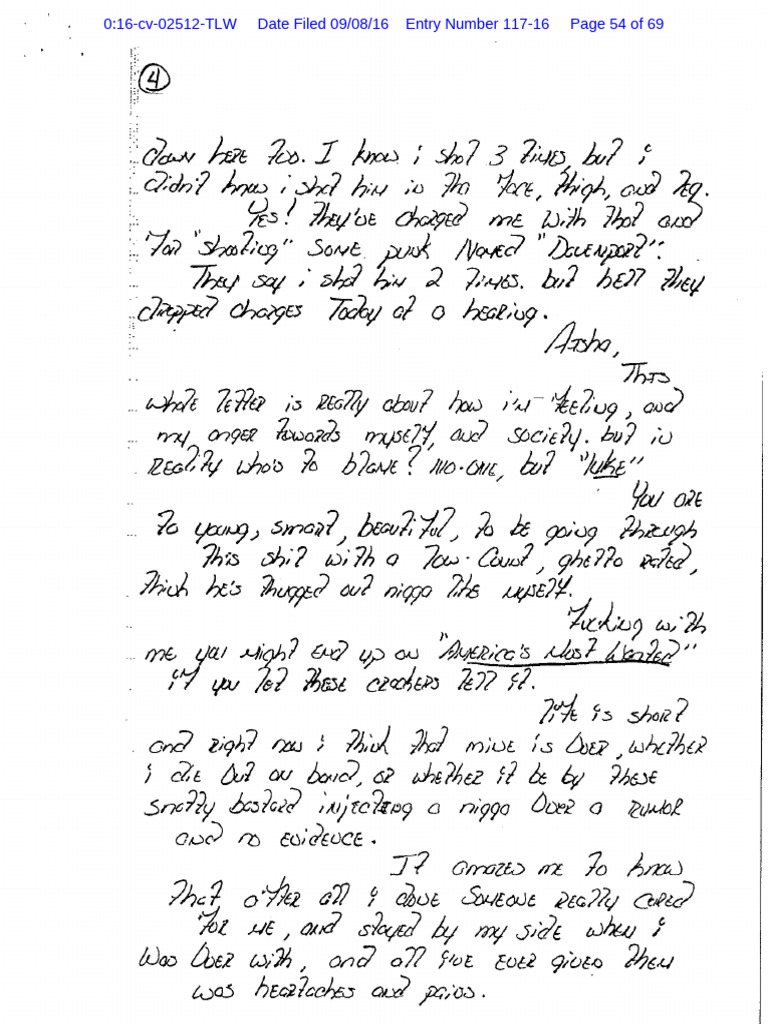 0:16-cv-02512-TLW Date Filed 09/08/16 Entry Number 117-16 Page 54 of 69
4
down here too. I know i shot 3 times, but i
didn't know i shot him in tha face, thigh, and leg.
Yes! They've charged me with that and
for "shooting" some punk named "Davenport".
They say i shot him 2 times. but hell they
dropped charges today at a hearing.
Aisha,
This
whole letter is really about how i'm feeling, and
my anger towards myself, and society. but in
reality who's to blame? no-one, but "luke"
You are
to young, smart, beautiful, to be going through
this shit with a low-count, ghetto rated,
think he's thugged out nigga like myself.
Fucking with
me you might end up on "America's Most Wanted"
if you let these crackers tell it.
Life is short
and right now i think that mine is over, whether
i die out on bond, or whether it be by these
bastard injecting a nigga over a rumor
and no evidence.
It amazes me to know
that after all i done someone really cared
for me, and stayed by my side when i
was over with, and all i've ever given them
was heartaches and pains.